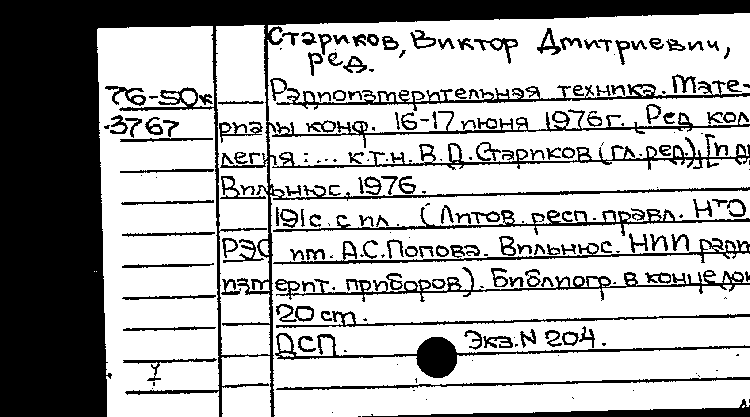 Стариков, Виктор Дмитриевич,
ред.
76-50к Радиоизмерительная техника. Мате-
3767 риалы конф. 16-17 июня 1976 г. [Ред кол
легия: ... к.т.н. В.Д. Стариков (гл.ред), [и др
Вильнюс, 1976.
191с. с ил. (Литов. респ. правл. НТО
РЭС им. А.С.Попова. Вильнюс. НИИ радио
измерит. приборов). Библиогр. в конце док
20 cm.
ДСП. Экз. N 204.